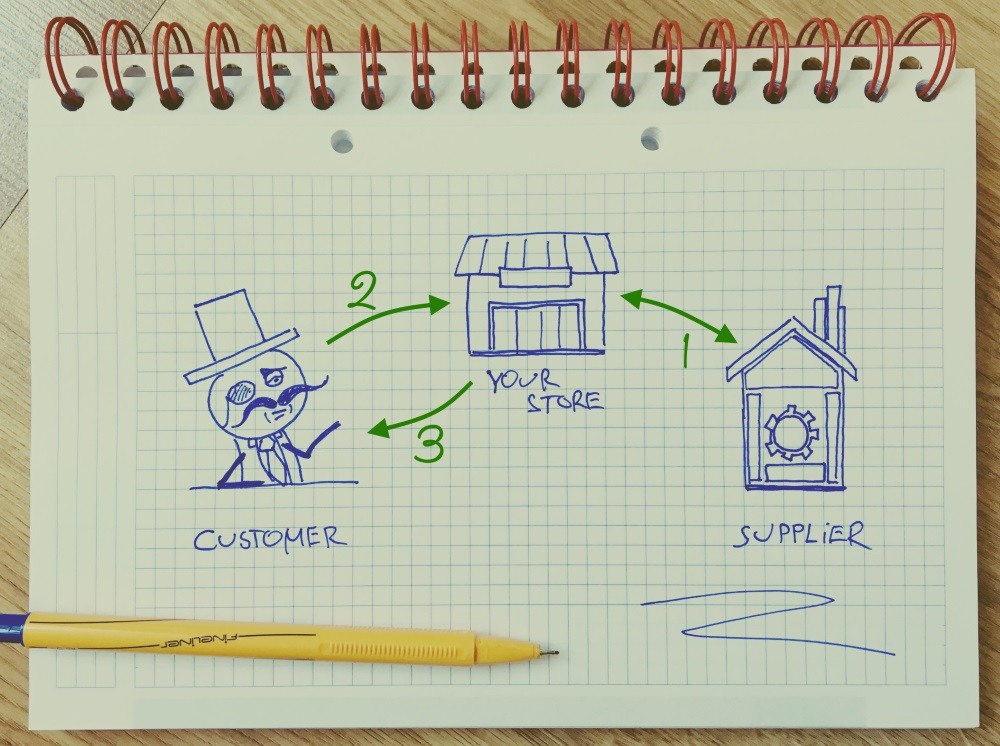 2
1
YOUR
STORE
3
CUSTOMER
SUPPLiER
Fineliner